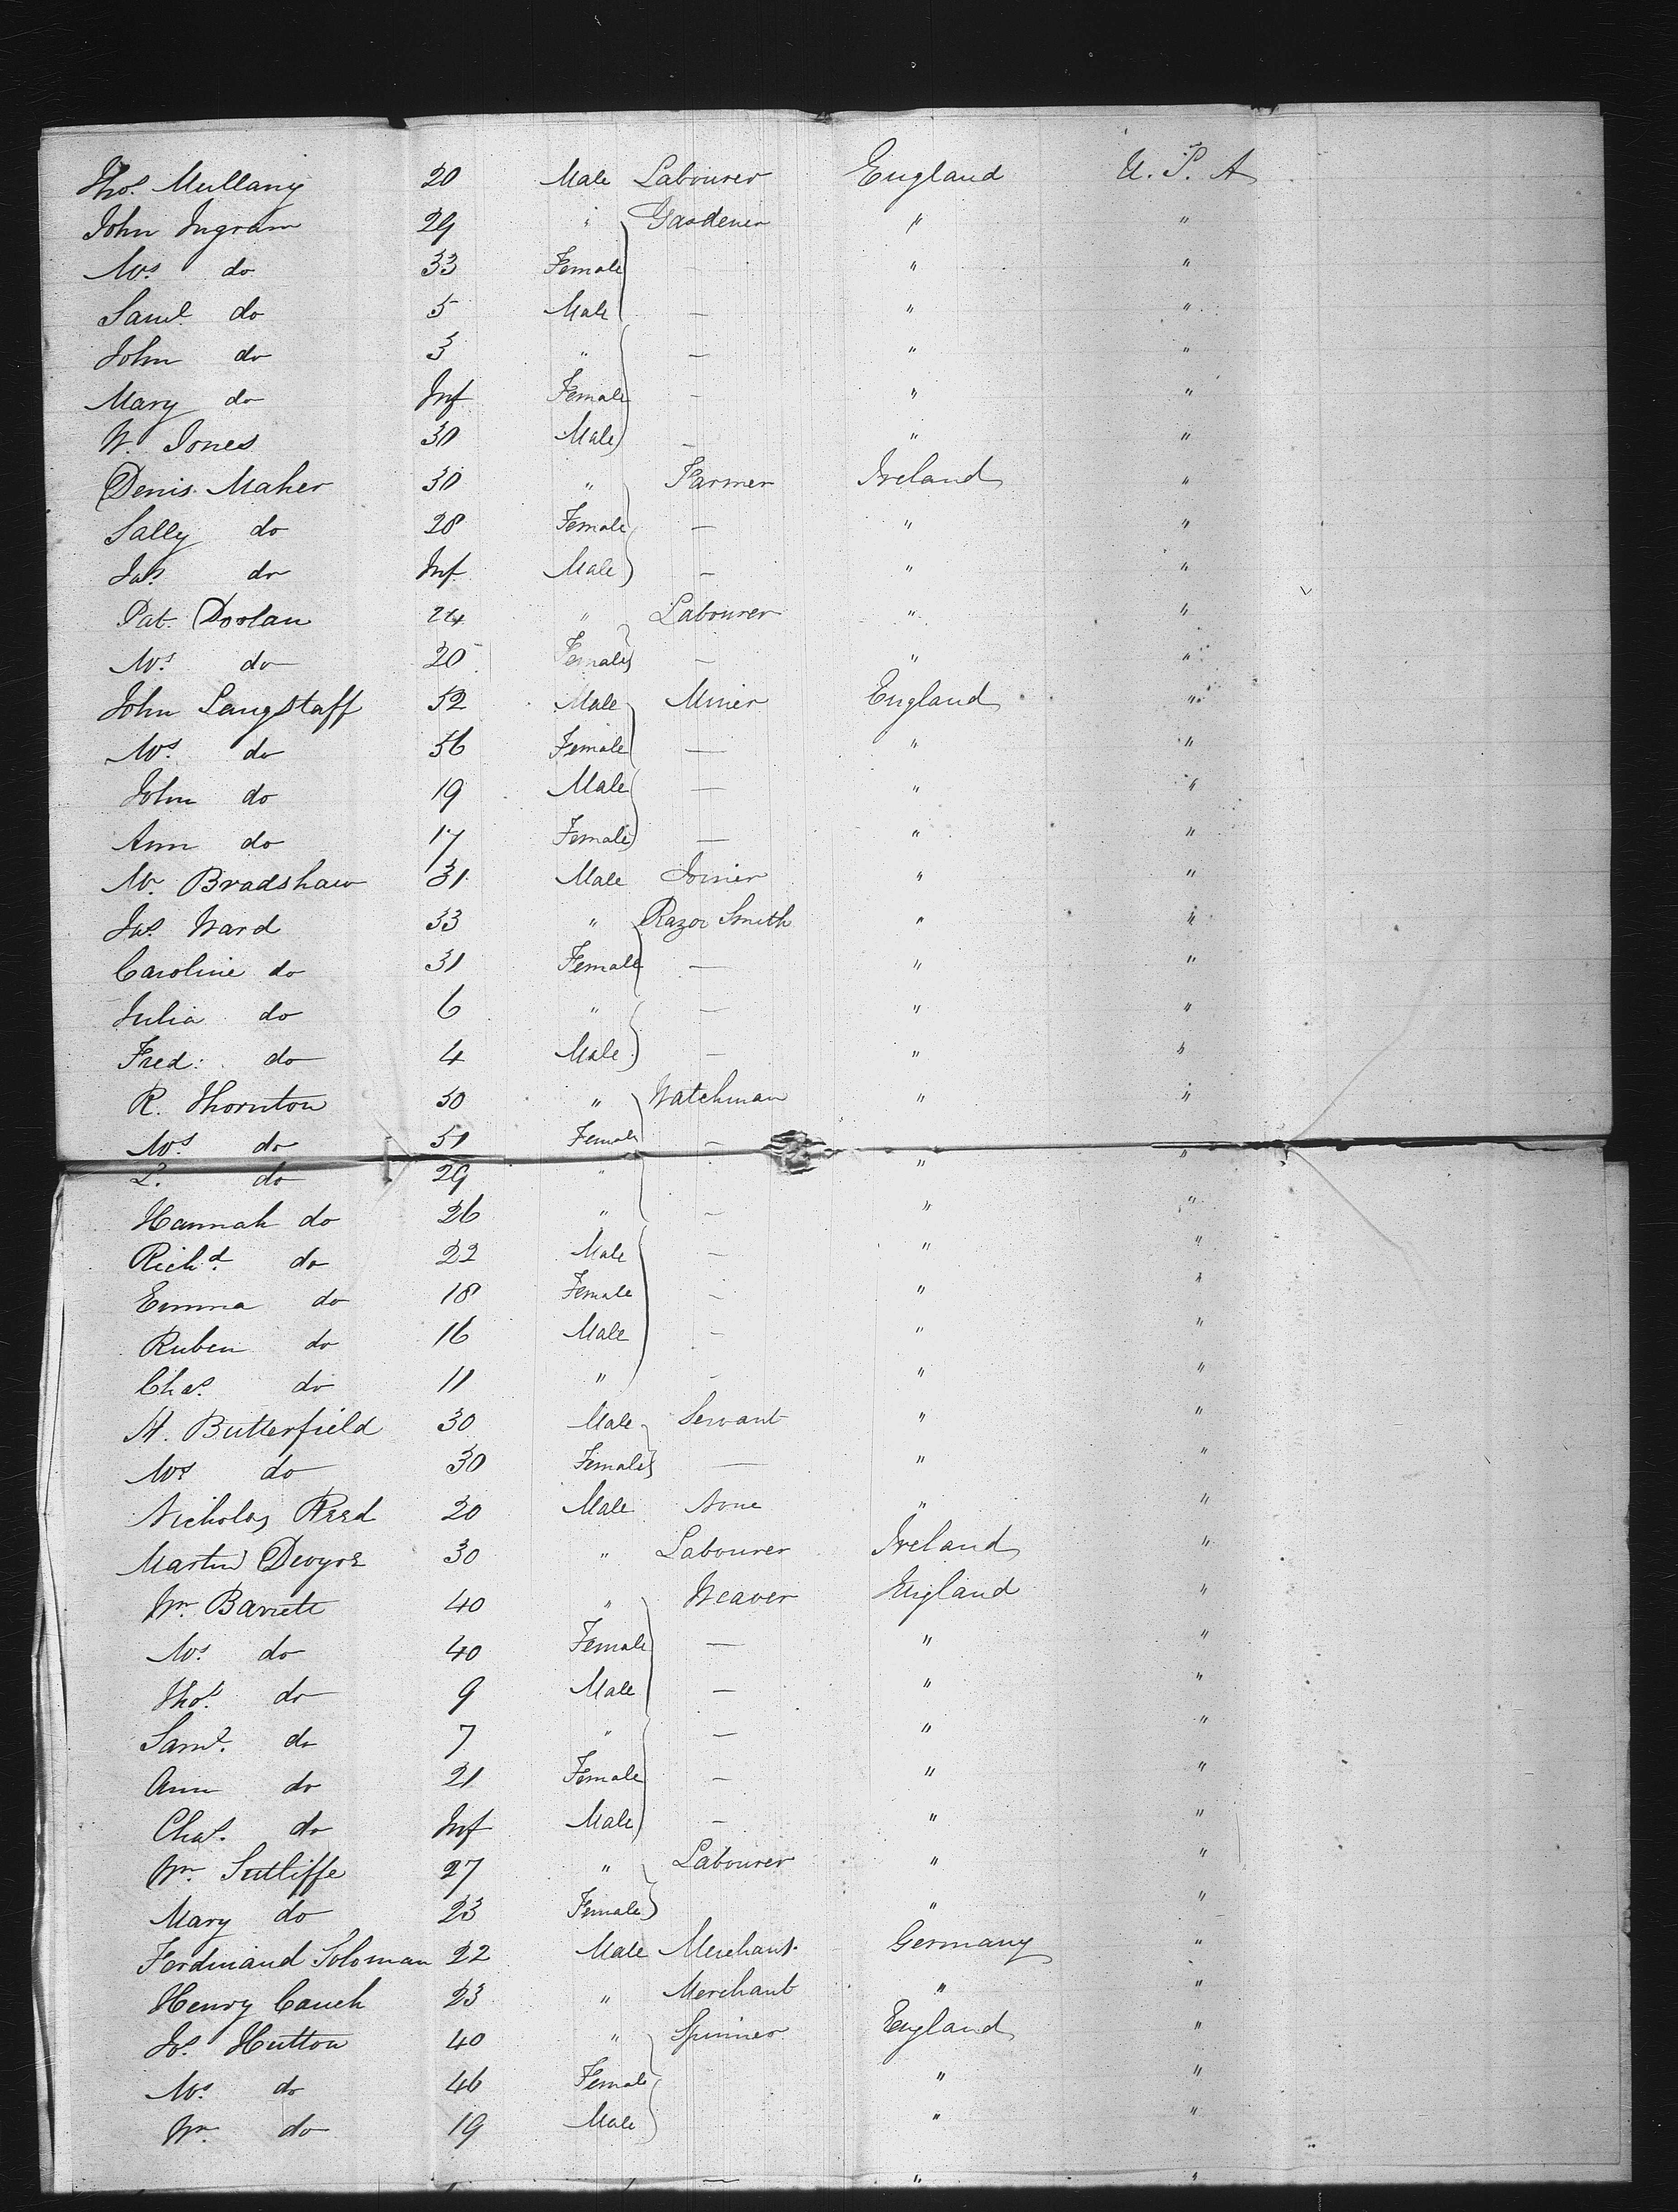 Thos. Mullany 20 Male Labourer England U. S. A
John Ingram 29 " Gardener " "
Mrs. do 33 Female — " "
Saml. do 5 Male — " "
John do 3 " — " "
Mary do Inf Female — " "
W. Jones 30 Male — " "
Denis Maher 30 " Farmer Ireland "
Sally do 28 Female — " "
Jas. do Inf Male — " "
Pat. Doolan 24 " Labourer " "
Mrs. do 20 Female — " "
John Langstaff 52 Male Miner England "
Mrs. do 56 Female — " "
John do 19 Male — " "
Ann do 17 Female — " "
Mr. Bradshaw 31 Male Joiner " "
Jas. Ward 33 " Razor Smith " "
Caroline do 31 Female — " "
Julia do 6 " — " "
Fred: do 4 Male — " "
R. Thornton 50 " Watchman " "
Mrs. do 51 Female —
do 29 " " "
Hannah do 26 " — " "
Richd. do 22 Male — " "
Emma do 18 Female — " "
Ruben do 16 Male — " "
Chas. do 11 " - " "
H. Butterfield 30 Male Servant " "
Mrs do 30 Female — " "
Nicholas Reed 20 Male None " "
Martin Dwyre 30 " Labourer Ireland "
Wm. Barrett 40 " Weaver England "
Mrs. do 40 Female — " "
Thos. do 9 Male — " "
Saml. do 7 " — " "
Ann do 21 Female — " "
Chas. do Inf Male — " "
Wm. Sutliffe 27 " Labourer " "
Mary do 23 Female " "
Ferdinand Soloman 22 Male Merchant Germany "
Henry Cauch 23 " Merchant " "
Js. Hutton 40 " Spinner England "
Mrs. do 46 Female " "
Wm. do 19 Male " "
— " "